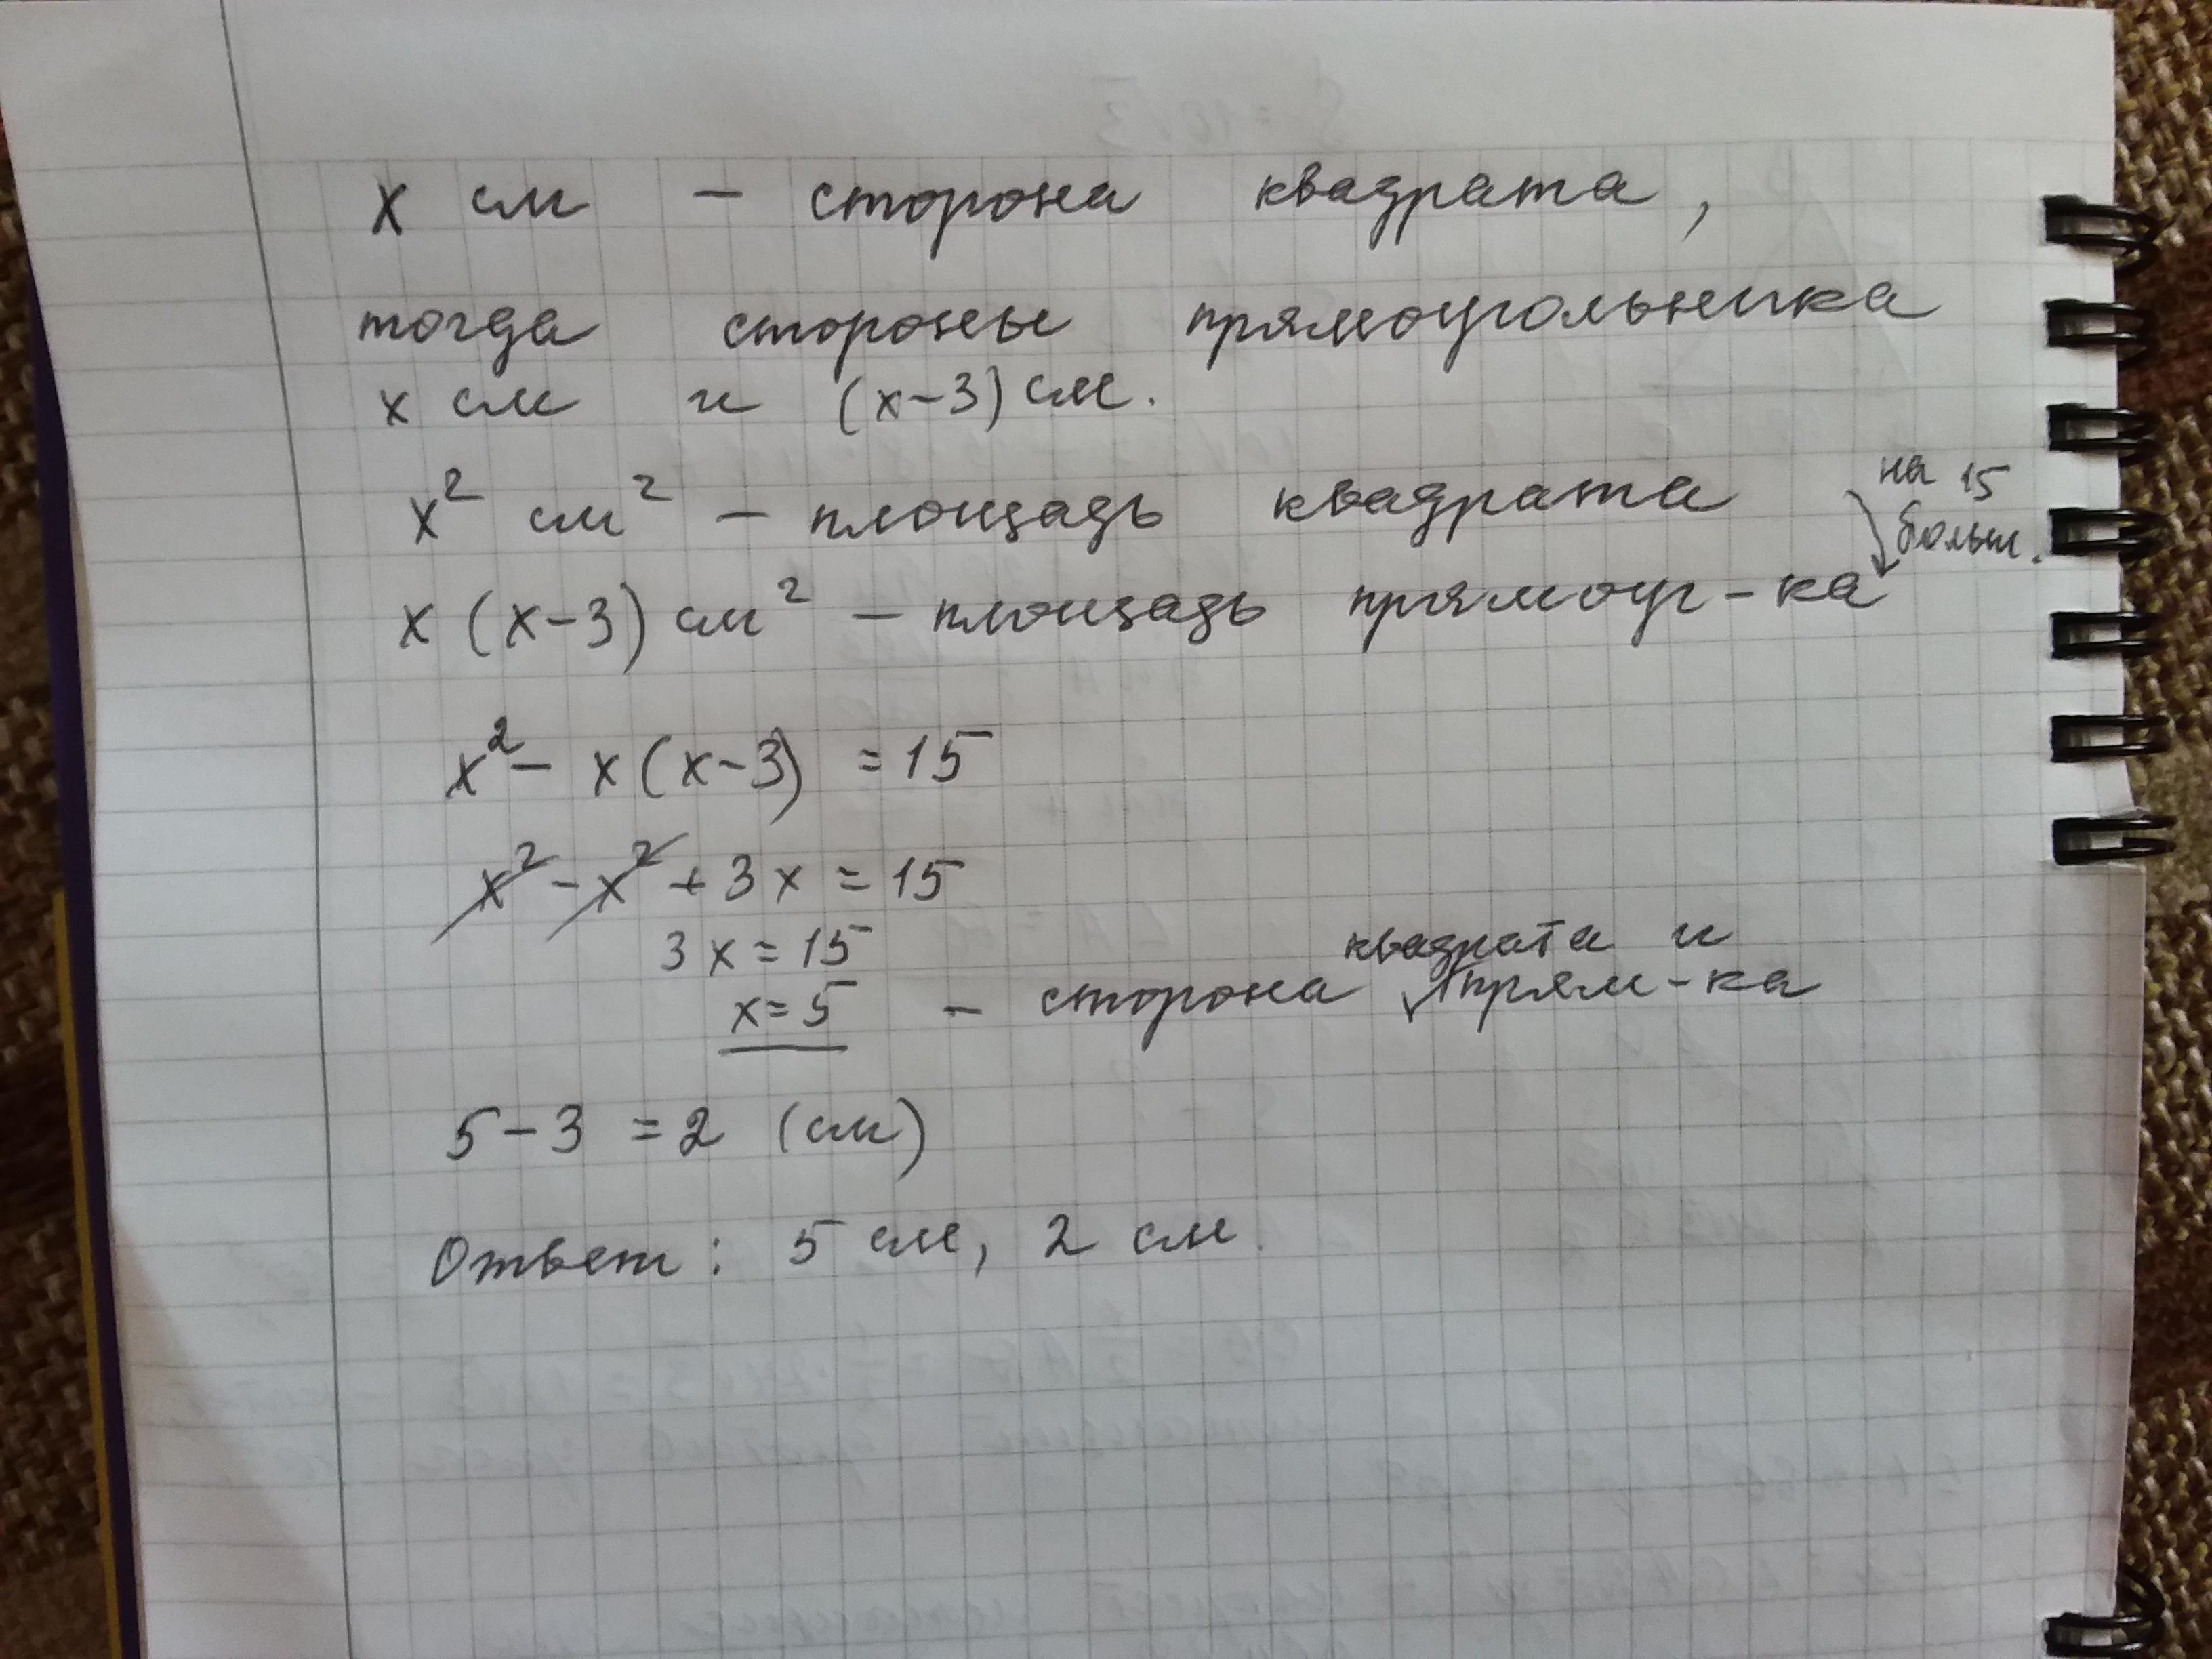 x см – сторона квадрата,
тогда стороны прямоугольника
x см и (x-3) см.
x² см² – площадь квадрата
на 15
больш.
x (x-3) см² – площадь прямоуг-ка
x² - x (x-3) = 15
x² - x² + 3x = 15
3x = 15
квадрата и
x = 5 – сторона прям-ка
5 - 3 = 2 (см)
Ответ: 5 см, 2 см.